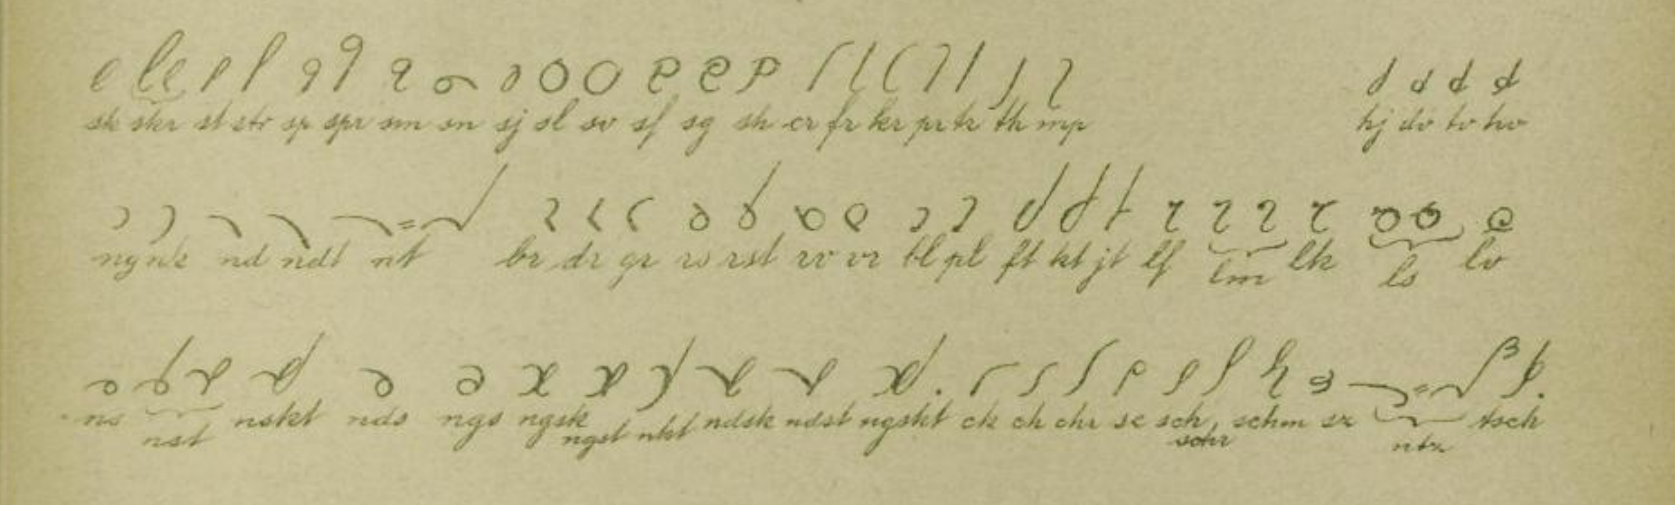 sk skr st str sp spr sm sn sj sl sv sf sg sh cr fr kr pr tr th mp hj dv tv hv
ng nk nd ndt nt br dr gr rs rst rv vr bl pl ft kt jt lf lm lk ls lv
ns nst nskt nds ngs ngsk ngst nkt ndsk ndst ngskt ck ch chr sc sch, schr schm sz ntz tsch